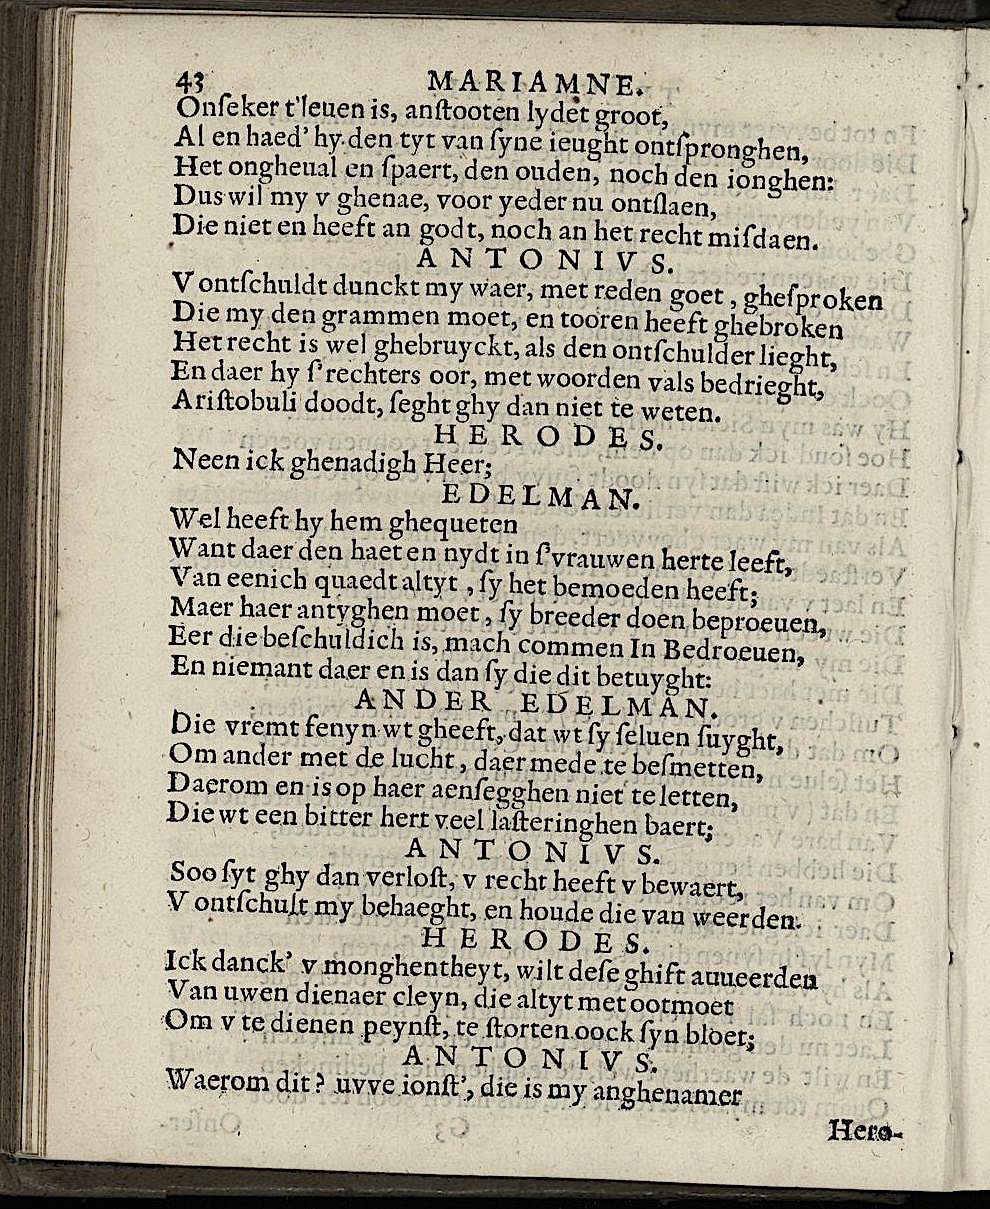 43 MARIAMNE.
Onſeker t'leuen is, anſtooten lydet groot,
Al en haed' hy den tyt van ſyne ieught ontſpronghen,
Het ongheual en ſpaert, den ouden, noch den ionghen:
Dus wil my v ghenae, voor yeder nu ontſlaen,
Die niet en heeft an godt, noch an het recht miſdaen.
ANTONIVS.
V ontſchuldt dunckt my waer, met reden goet, gheſproken
Die my den grammen moet, en tooren heeft ghebroken
Het recht is wel ghebruyckt, als den ontſchulder lieght,
En daer hy ſ'rechters oor, met woorden vals bedrieght,
Ariſtobuli doodt, ſeght ghy dan niet te weten.
HERODES.
Neen ick ghenadigh Heer;
EDELMAN.
Wel heeft hy hem ghequeten
Want daer den haet en nydt in ſ'vrauwen herte leeft,
Van eenich quaedt altyt, ſy het bemoeden heeft;
Maer haer antyghen moet, ſy breeder doen beproeuen,
Eer die beſchuldich is, mach commen In Bedroeuen,
En niemant daer en is dan ſy die dit betuyght:
ANDER EDELMAN.
Die vremt fenyn wt gheeft, dat wt ſy ſeluen ſuyght,
Om ander met de lucht, daer mede te beſmetten,
Daerom en is op haer aenſegghen niet te letten,
Die wt een bitter hert veel laſteringhen baert;
ANTONIVS.
Soo ſyt ghy dan verloſt, v recht heeft v bewaert,
V ontſchult my behaeght, en houde die van weerden.
HERODES.
Ick danck' v monghentheyt, wilt deſe ghift auueerden
Van uwen dienaer cleyn, die altyt met ootmoet
Om v te dienen peynſt, te ſtorten oock ſyn bloet;
ANTONIVS.
Waerom dit? uvve ionſt', die is my anghenamer
Hero-